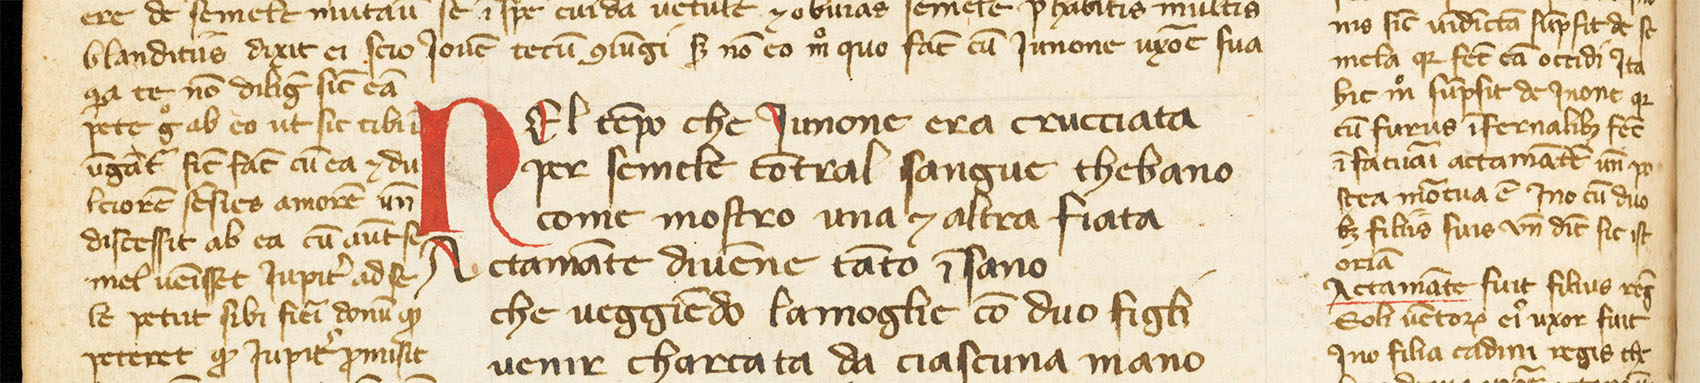 ere de semele mutauit se i spem cuida uetule ⁊ obuias semele p habitis multis
blanditiis dixit ei scio Joue tecu ꝯiugi sꝫ no eo mo quo fac cu Junone uxoe sua
qa te no dilig sic ea
pete g ab eo ut sic tibi i
ugat sic fac cu ea ⁊ du
lciore seties amore un
discessit ab ea cu aut se
mel ueisset Jupit ad se
le petut sibi fieri donu qp
peteret qp Jupit pmisit
NEl tepo che Junone era crucciata
per semele cotral sangue thebano
come mostro una ⁊ altra fiata
Actamate diuene tato isano
che ueggiedo la moglie co duo figli
uenir charcata da ciascuna mano
nis sic uidicta supsit de se
mela qr fec ea occidi Ita
hic mo supsit de Inone qr
cu furiis ifernalibꝫ fec
ifatuai actamate un po
stea mortua e Ino cu duo
bꝫ filiis suis Vn dic sic ist
oria
Actamate fuit filius reg
Eoli uetorꝫ ei uxor fuit
Ino filia cadmi regis the